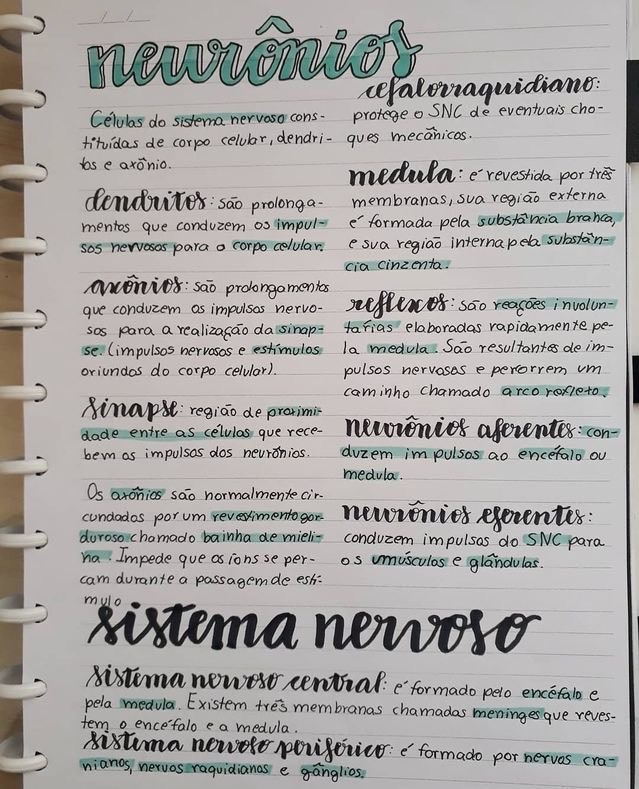 neurônios
Células do sistema nervoso cons-
tituídas de corpo celular, dendri-
tos e axônio.
dendritos: são prolonga-
mentos que conduzem os impul-
sos nervosos para o corpo celular.
axônios: são prolongamentos
que conduzem os impulsos nervo-
sos para a realização da sinap-
se. (impulsos nervosos e estímulos
oriundos do corpo celular).
sinapse: região de proximi-
dade entre as células que rece-
bem os impulsos dos neurônios.
Os axônios são normalmente cir-
cundados por um revestimento gor-
duroso chamado bainha de mieli-
na. Impede que os íons se per-
cam durante a passagem de estí-
mulo
cefalorraquidiano:
protege o SNC de eventuais cho-
ques mecânicos.
medula: é revestida por três
membranas, sua região externa
é formada pela substância branca,
e sua região interna pela substân-
cia cinzenta.
reflexos: são reações involun-
tárias elaboradas rapidamente pe-
la medula. São resultantes de im-
pulsos nervosos e percorrem um
caminho chamado arco refleto.
neurônios aferentes: con-
duzem impulsos ao encéfalo ou
medula.
neurônios eferentes:
conduzem impulsos do SNC para
os músculos e glândulas.
sistema nervoso
sistema nervoso central: é formado pelo encéfalo e
pela medula. Existem três membranas chamadas meninges que reves-
tem o encéfalo e a medula.
sistema nervoso periférico: é formado por nervos cra-
nianos, nervos raquidianos e gânglios.